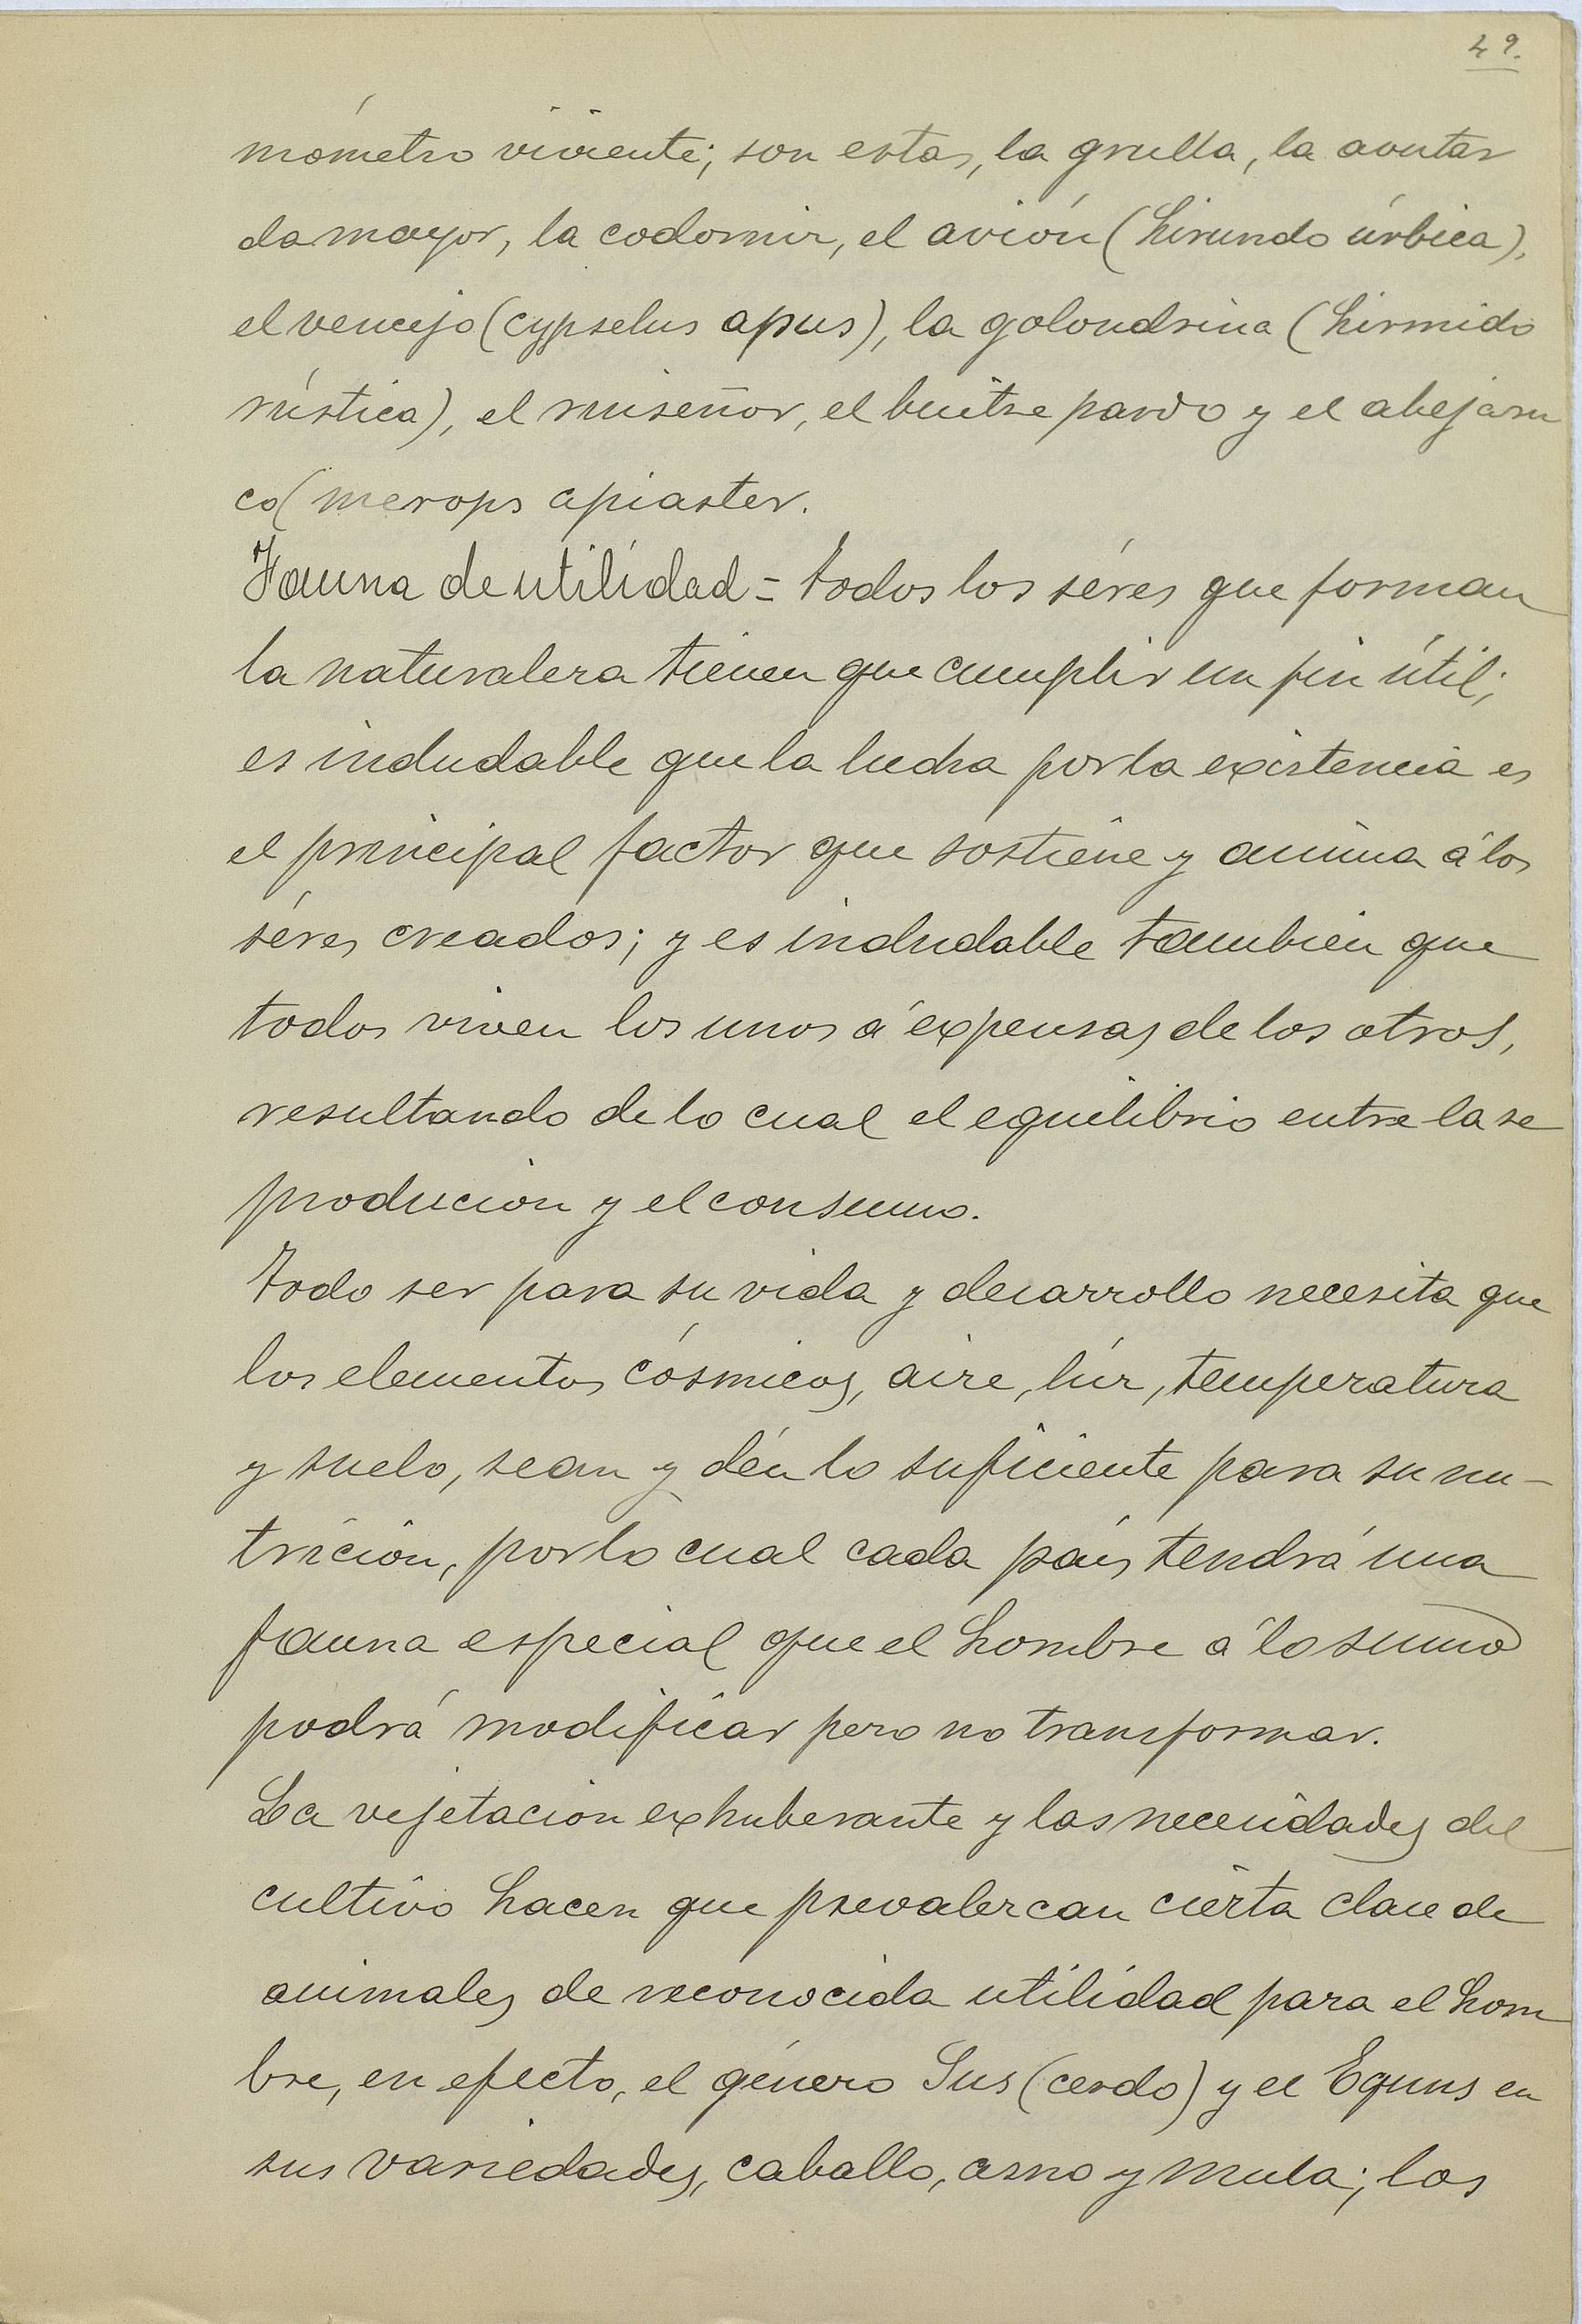 49.
mómetro viviente; son estas, la grulla, la avutar
da mayor, la codorniz, el avión (hirundo úrbica),
el vencejo (cypselus apus), la golondrina (hirmido
rústica), el ruiseñor, el buitre pardo y el abejaru
co (merops apiaster.
Fauna de utilidad = Todos los séres que forman
la naturaleza tienen que cumplir un fin útil;
es indudable que la lucha por la existencia es
el principal factor que sostiene y anima á los
séres creados; y es indudable tambien que
todos viven los unos á expensas de los otros,
resultando de lo cual el equilibrio entre la re
produción y el consumo.
Todo ser para su vida y desarrollo necesita que
los elementos cósmicos, aire, lúz, temperatura
y suelo, sean y dén lo suficiente para su nu-
trición, por lo cual cada país tendrá una
fauna especial que el hombre á lo sumo
podrá modificar pero no transformar.
La vejetación exhuberante y las necesidades del
cultivo hacen que prevalezcan cierta clase de
animales de reconocida utilidad para el hom
bre, en efecto, el género Sus (cerdo) y el Equus en
sus variedades, caballo, asno y mula; los